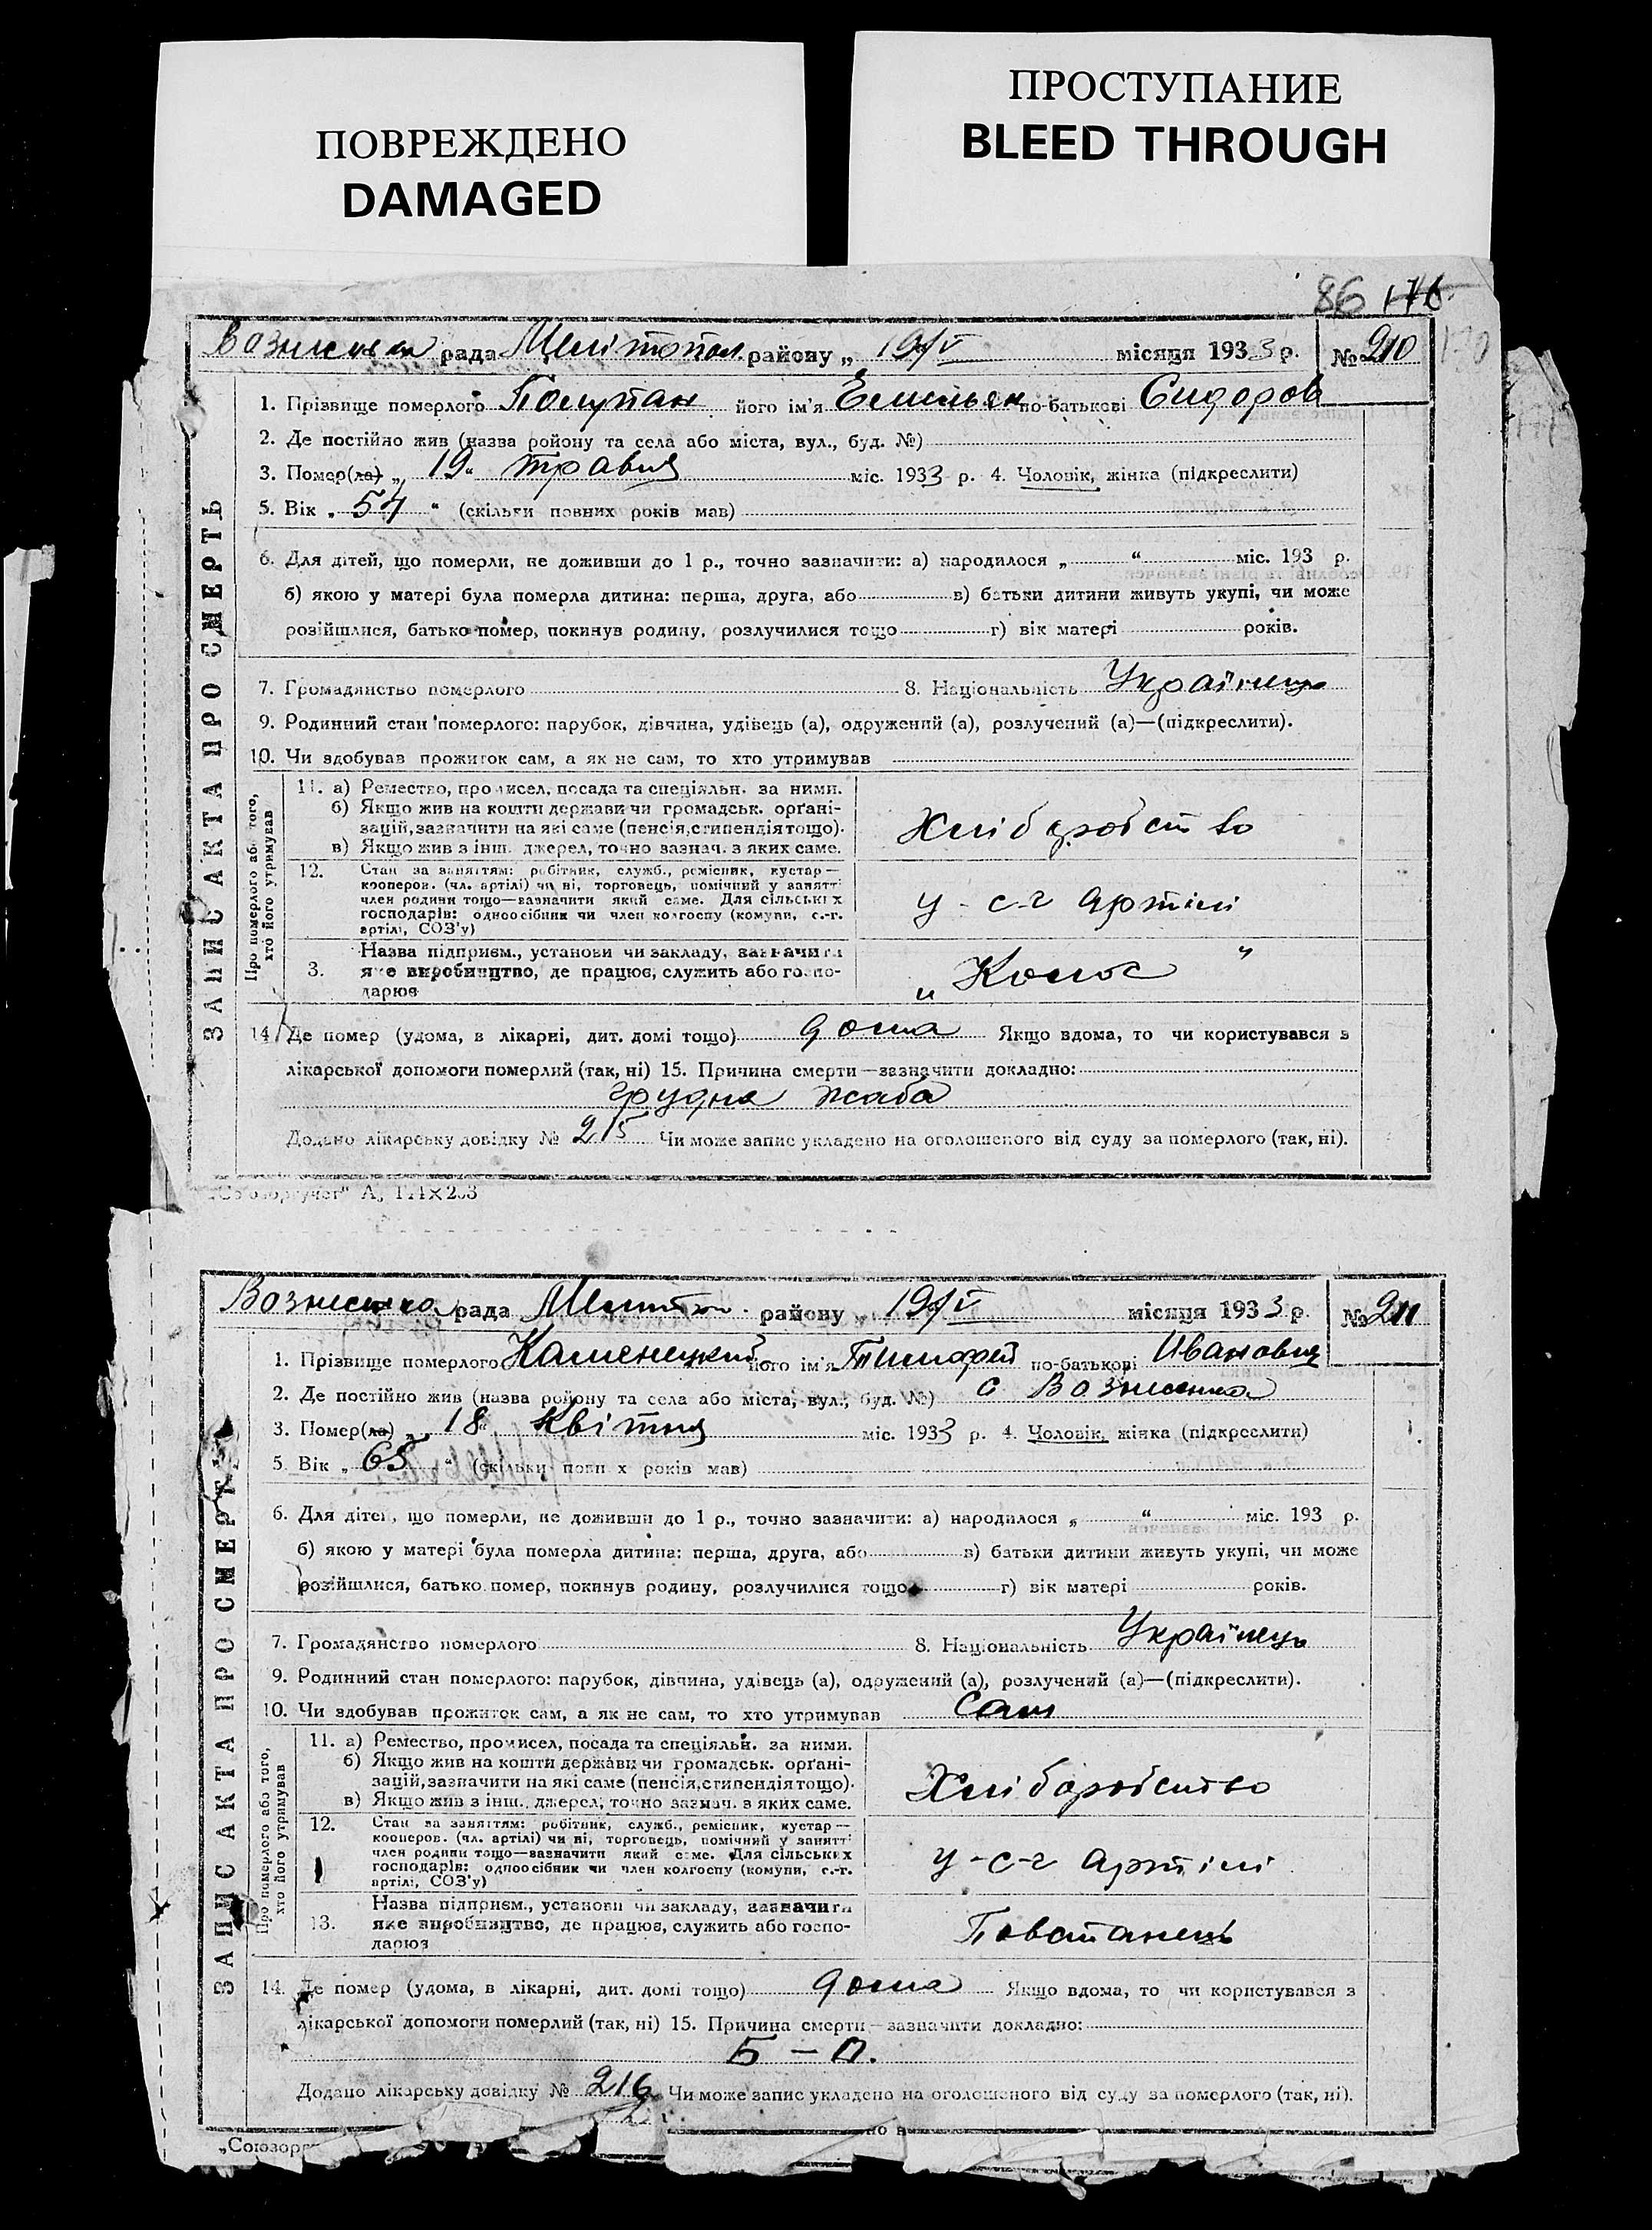 ПОВРЕЖДЕНО
DAMAGED
ПРОСТУПАНИЕ
BLEED THROUGH
86 176
Вознесенка рада Мелітопол. району „ 19/V місяця 1933 р. № 210
ЗАПИС АКТА ПРО СМЕРТЬ
1. Прізвище померлого Полупан його ім’я Емельян по-батькові Сидоров
2. Де постійно жив (назва району та села або міста, вул., буд. №)
3. Помер(ла) „ 19 “ травня міс. 1933 р. 4. Чоловік, жінка (підкреслити)
5. Вік „ 54 “ (скільки повних років мав)
6. Для дітей, що померли, не доживши до 1 р., точно зазначити: а) народилося „ “ міс. 193 р.
б) якою у матері була померла дитина: перша, друга, або в) батьки дитини живуть укупі, чи може
розійшлися, батько помер, покинув родину, розлучилися тощо г) вік матері років.
7. Громадянство померлого 8. Національність Українець
9. Родинний стан померлого: парубок, дівчина, удівець (а), одружений (а), розлучений (а)—(підкреслити).
10. Чи здобував прожиток сам, а як не сам, то хто утримував
Про померлого або того, хто його утримував
11. а) Ремество, промисел, посада та спеціяльн. за ними.
б) Якщо жив на кошти держави чи громадськ. орґані-
зацій, зазначити на які саме (пенсія, стипендія тощо).
в) Якщо жив з інш. джерел, точно зазнач. з яких саме.
Хліборобство
12. Стан за заняттям: робітник, служб., ремісник, кустар—
кооперов. (чл. артілі) чи ні, торговець, помічний у занятті
член родини тощо—зазначити який саме. Для сільських
господарів: одноосібник чи член колгоспу (комуни, с.-г.
артілі, СОЗ’у)
у - с-г артілі
3. Назва підприєм., установи чи закладу, зазначити
яке виробництво, де працює, служить або госпо-
дарює
„ Колос ”
14. Де помер (удома, в лікарні, дит. домі тощо) дома Якщо вдома, то чи користувався з
лікарської допомоги померлий (так, ні) 15. Причина смерти—зазначити докладно:
грудна жаба
Додано лікарську довідку № 215 Чи може запис укладено на оголошеного від суду за померлого (так, ні).
„Союзоргучет“ А
Вознесенка рада Меліто. району „ 19/V місяця 1933 р. № 211
ЗАПИС АКТА ПРО СМЕРТЬ
1. Прізвище померлого Каменецкий його ім’я Тимофей по-батькові Иванович
2. Де постійно жив (назва району та села або міста, вул., буд. №) с Вознесенка
3. Помер(ла) „ 18 “ Квітня міс. 1933 р. 4. Чоловік, жінка (підкреслити)
5. Вік „ 65 “ (скільки повн х років мав)
6. Для дітей, що померли, не доживши до 1 р., точно зазначити: а) народилося „ “ міс. 193 р.
б) якою у матері була померла дитина: перша, друга, або в) батьки дитини живуть укупі, чи може
розійшлися, батько помер, покинув родину, розлучилися тощо г) вік матері років.
7. Громадянство померлого 8. Національність Українець
9. Родинний стан померлого: парубок, дівчина, удівець (а), одружений (а), розлучений (а)—(підкреслити).
10. Чи здобував прожиток сам, а як не сам, то хто утримував Сам
Про померлого або того, хто його утримував
11. а) Ремество, промисел, посада та спеціяльн. за ними.
б) Якщо жив на кошти держави чи громадськ. орґані-
зацій, зазначити на які саме (пенсія, стипендія тощо).
в) Якщо жив з інш. джерел, точно зазнач. з яких саме.
Хліборобство
12. Стан за заняттям: робітник, служб., ремісник, кустар—
кооперов. (чл. артілі) чи ні, торговець, помічний у занятті
член родини тощо—зазначити який саме. Для сільських
господарів: одноосібник чи член колгоспу (комуни, с.-г.
артілі, СОЗ’у)
у - с-г артілі
13. Назва підприєм., установи чи закладу, зазначити
яке виробництво, де працює, служить або госпо-
дарює
Повстанець
14. Де помер (удома, в лікарні, дит. домі тощо) дома Якщо вдома, то чи користувався з
лікарської допомоги померлий (так, ні) 15. Причина смерти—зазначити докладно:
Б – О.
Додано лікарську довідку № 216 Чи може запис укладено на оголошеного від суду за померлого (так, ні).
„Союзорг